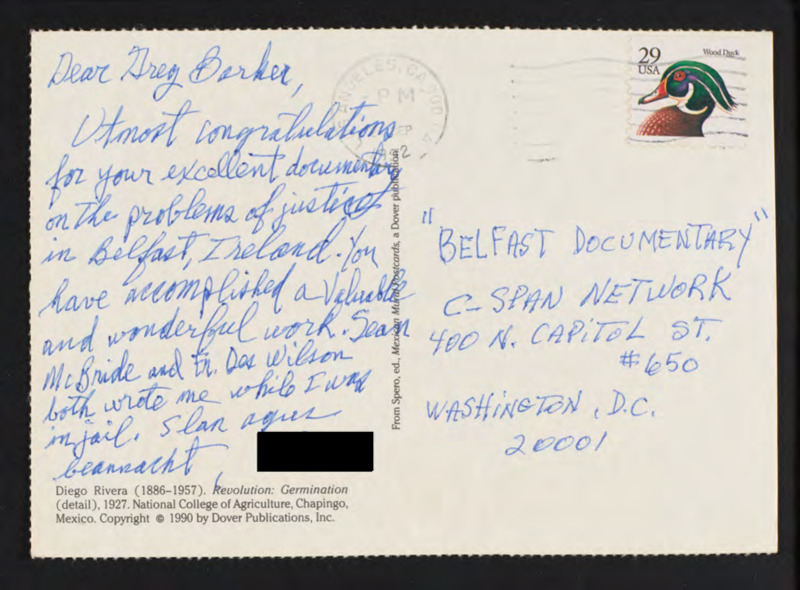 Dear Greg Barker,
Utmost congratulations
for your excellent documentary
on the problems of justice
in Belfast, Ireland. You
have accomplished a valuable
and wonderful work. Sean
McBride and Fr. Des Wilson
both wrote me while I was
in jail. Slan agus
beannacht,
Diego Rivera (1886–1957). Revolution: Germination
(detail), 1927. National College of Agriculture, Chapingo,
Mexico. Copyright © 1990 by Dover Publications, Inc.
From Spero, ed., Mexican Mural Postcards, a Dover publication
ANGELES, CA 900
PM
SEP
29
USA
Wood Duck
"BELFAST DOCUMENTARY"
C-SPAN NETWORK
400 N. CAPITOL ST.
#650
WASHINGTON, D.C.
20001